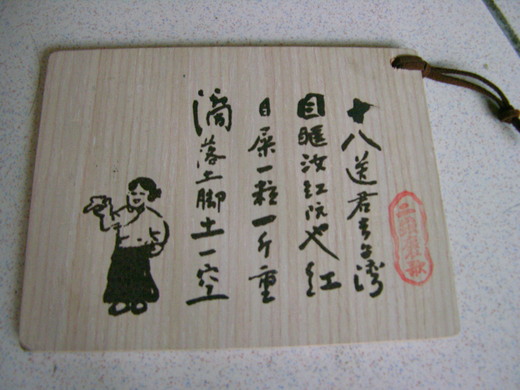 十八送君去台湾
目眶汝红阮也红
目屎一粒一斤重
滴落土脚土一空